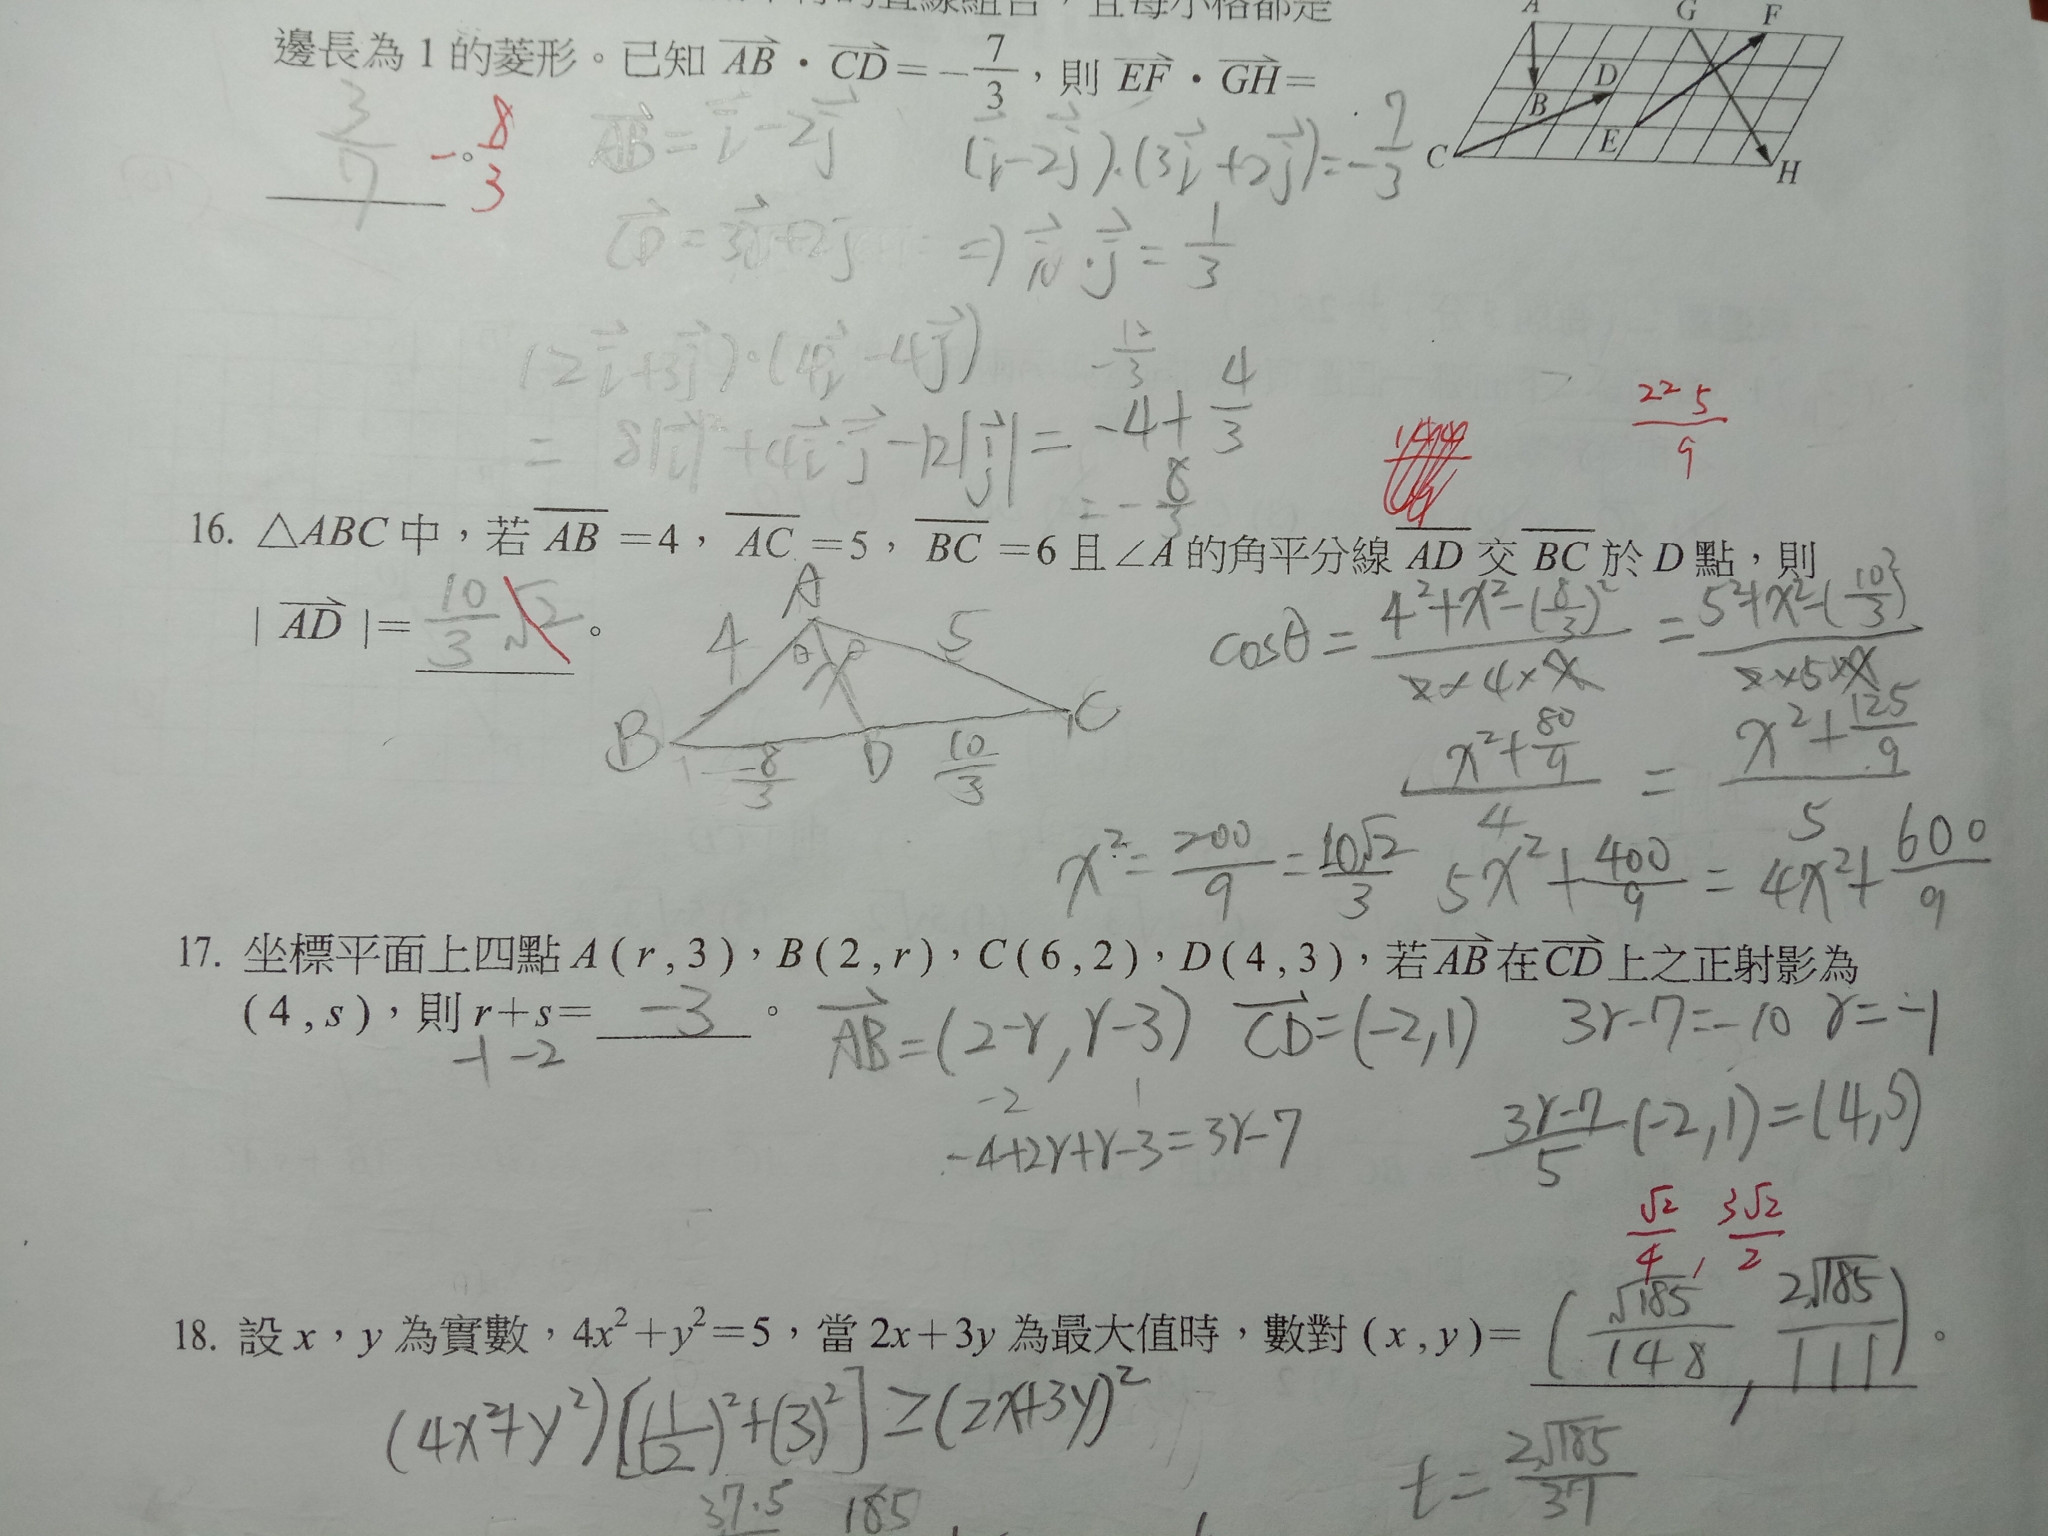 邊長為 1 的菱形。已知 AB・CD=-7/3，則 EF・GH=
3/7 。 -8/3
AB=i-2j
(i-2j)·(3i+2j)=-7/3
CD=3i+2j
=> i·j=1/3
(2i+3j)·(4i-4j)
= 8|i|²+4i·j-12|j| = -4+4/3
-12/3
=-8/3
A G F
D
B
E
C
H
225/9
16. △ABC 中，若 AB =4，AC =5，BC =6 且∠A 的角平分線 AD 交 BC 於 D 點，則
| AD |= 10/3 √2 。
A
4 θ θ 5
x
B D C
8/3 10/3
cosθ = (4²+x²-(8/3)²)/(2×4×x) = (5²+x²-(10/3)²)/(2×5×x)
(x²+80/9)/4 = (x²+125/9)/5
x²=200/9=10√2/3
5x²+400/9=4x²+600/9
17. 坐標平面上四點 A ( r , 3 )，B ( 2 , r )，C ( 6 , 2 )，D ( 4 , 3 )，若 AB 在 CD 上之正射影為
( 4 , s )，則 r+s= -3 。
-1 -2
AB=(2-r, r-3) CD=(-2,1) 3r-7=-10 r=-1
-2 1
-4+2r+r-3=3r-7
(3r-7)/5 (-2,1)=(4,s)
√2/4, 3√2/2
18. 設 x，y 為實數，4x²+y²=5，當 2x+3y 為最大值時，數對 ( x , y )= (√185/148, 2√185/111) 。
(4x²+y²)[(1/2)²+(3)²]≥(2x+3y)²
t=2√185/37
37·5 185